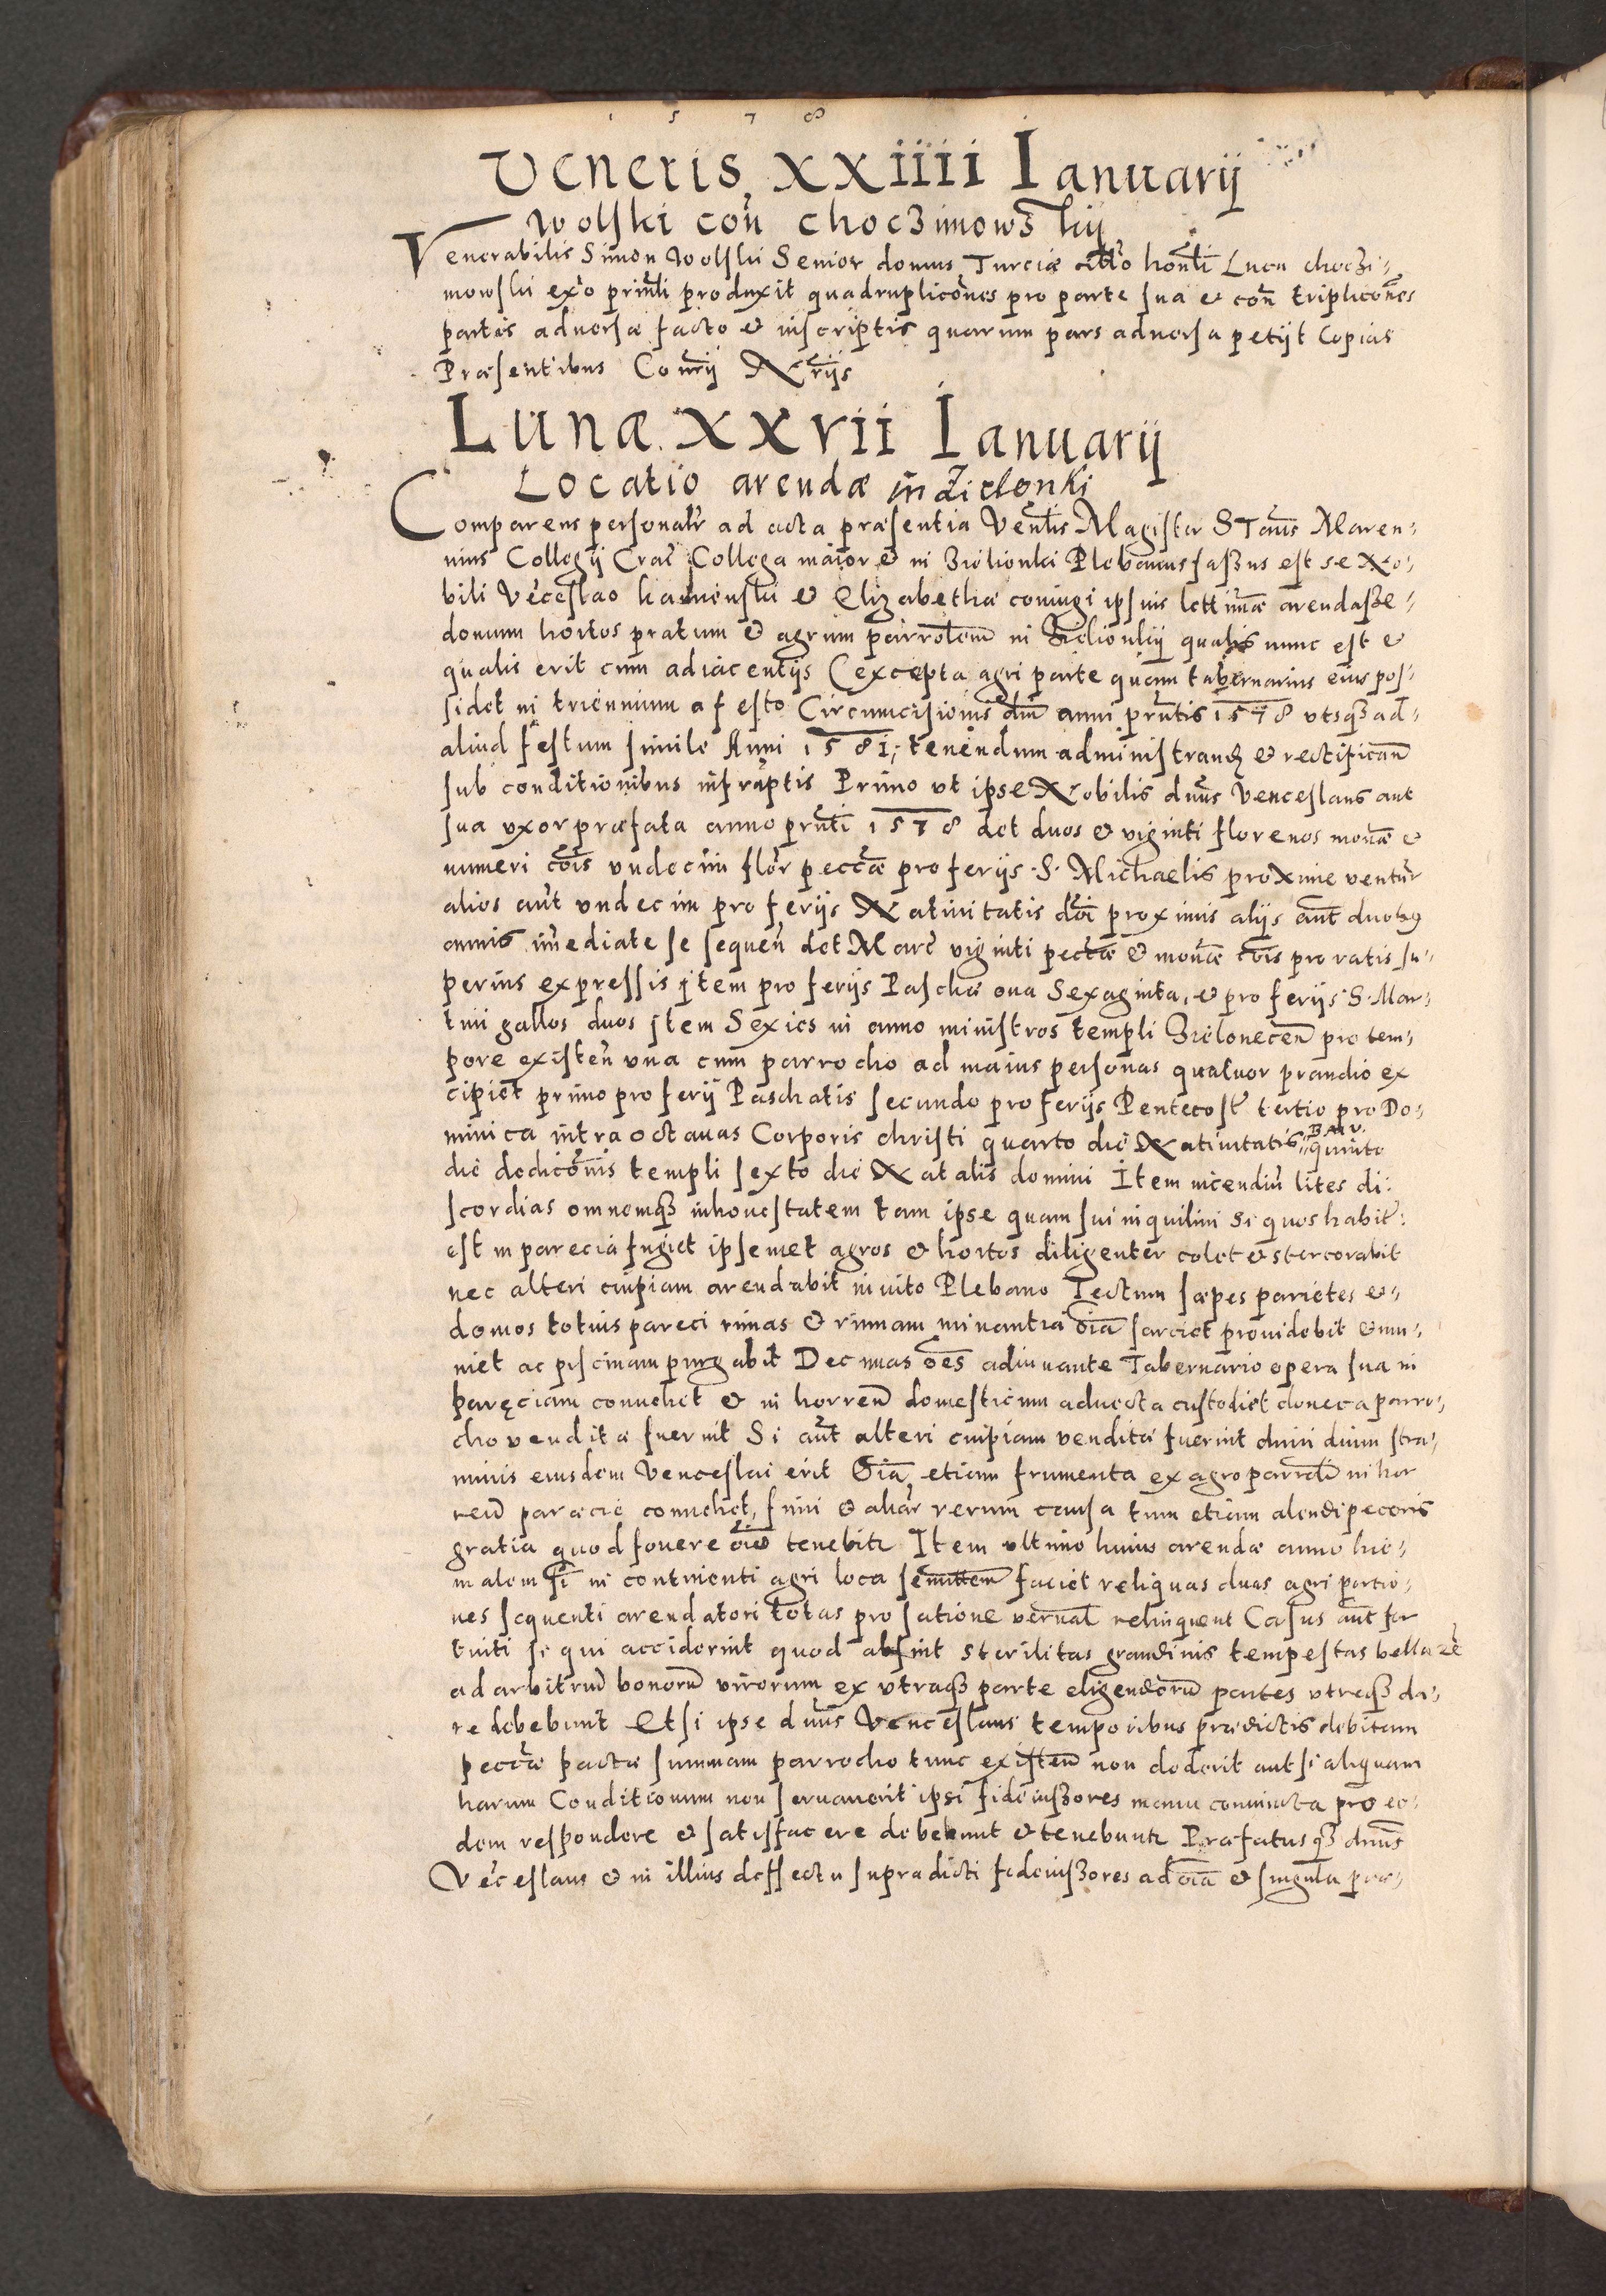 1 5 7 8
Veneris XXIIII Ianuarij
Wolski con̄ Choczimowskij
Venerabilis Simon Wolski Senior domus Turciæ citto honti Luca choczi-
mowski exo prinli produxit quadruplicōnes pro parte sua et con̄ triplicōnes
partis aduersæ facto et inscriptis quarum pars aduersa petijt Copias
Præsentibus Conrij Nrijs
Lunæ XXVII Ianuarij
Locatio arendæ in Zielonki
Comparens personalr ad acta præsentia Venlis Magister Staūs Maren-
nius Collegij Crac Collega maior et in Zielionki Plebanus faszus est se No-
bili Vēceslao kamienski et Elizabethæ coniugi ipsius lettimæ arendasze-
domum hortos pratum et agrum parrolem in Zielionkij qualis nunc est et
qualis erit cum adiacentijs (excepta agri parte quam tabernarius eius pos-
sidet in triennium a festo Circumcisionis dm̄ anni prn̄tis 1578 vtsqȝ ad-
aliud festum simile Anni 1581; tenendum administrand et rectifican̄
sub conditionibus infraptis Primo vt ipse Nobilis dnūs Venceslaus aut
sua vxor præfata anno prn̄ti 1578 det duos et viginti florenos monæ et
numeri cōis vndecim flor peccæ pro ferijs S. Michaelis proxime ventur
alios aūt vndecim pro ferijs Natiuitatis dōi proximis alijs aūt duobus
annis īmediate se sequen̄ det Marc viginti pectæ et monæ cōis pro ratis su-
perius expressis jtem pro ferijs Paschæ oua Sexaginta, et pro ferijs S. Mar-
tini gallos duos jtem Sexies in anno ministros templi Zielonecen̄ pro tem-
pore existen̄ vna cum parrocho ad maius personas quatuor prandio ex
cipiet primo pro ferij Paschatis secundo pro ferijs Pentecost tertio pro Do-
minica intra octauas Corporis christi quarto die Natiuitatis B M V. quinto
die dedicōnis templi sexto die Natalis domini Item incendiū lites di-
scordias omnemqȝ inhonestatem tam ipse quam sui inquilini Si quos habit-
est in parecia fugiet ipsemet agros et hortos diligenter colet et stercorabit
nec alteri cuipiam arendabit inuito Plebano Tectum sæpes parietes et-
domos totius pareci rimas et ruinam minantia ōia sarciet prouidebit et mu-
niet ac piscinam purgabit Decimas ōes adiuuante Tabernario opera sua in
paręciam conuehet et in horreū domesticum aduecta custodiet donec a parro-
cho vendita fuerint Si aūt alteri cuipiam vendita fuerint dimidium stra-
minis eiusdem Venceslai erit Ōia etiam frumenta ex agro parrolī in hor
reū paræciæ conuehet, fimi et aliar rerum causa tum etiam alendi pecoris
gratia quod fouere ōīo tenebitr Item vltimo huius arendæ anno hie-
malem in continenti agri loca faciet reliquas duas agri portio-
nes sequenti arendatori totas pro satione vernal relinquent Casus aūt for
tuiti si qui acciderint quod absint sterilitas grandinis tempestas bella
ad arbitriū bonorū virorum ex vtraqȝ parte eligendorū partes vtræqȝ da-
re debebunt Et si ipse dnūs Venceslaus temporibus prædictis debitam
peccæ pactæ summam parrocho tunc existen̄ non dederit aut si aliquam
harum Conditionum non seruauerit ipsi fideiuszores manu coniuncta pro eo-
dem respondere et satisfacere debebunt et tenebuntr Præfatusqȝ dnūs
Vēceslaus et in illius deffectu supradicti fideiuszores ad ōīa et singula præ-